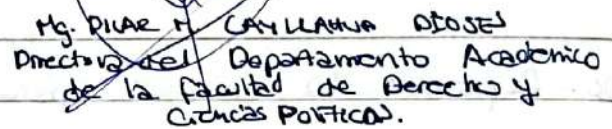 Mg. PILAR M CAYLLAHUA DIOSES
Directora del Departamento Academico
de la facultad de Derecho y
Ciencias Politicas.